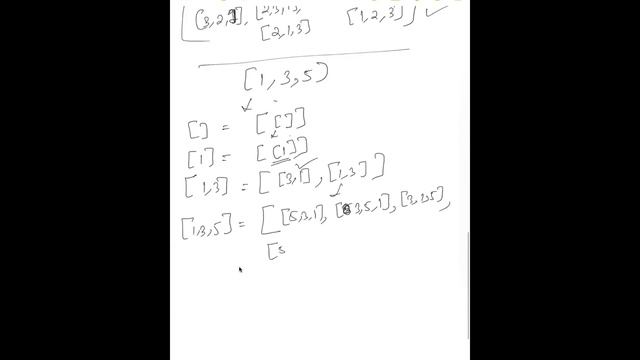 [3,2,1], [2,3,1], [1,2,3] ] ✓
[2,1,3]
[1,3,5]
[] = [[]]
[1] = [[1]]
[1,3] = [[3,1], [1,3]]
[1,3,5] = [ [5,3,1], [3,5,1], [3,1,5],
[5